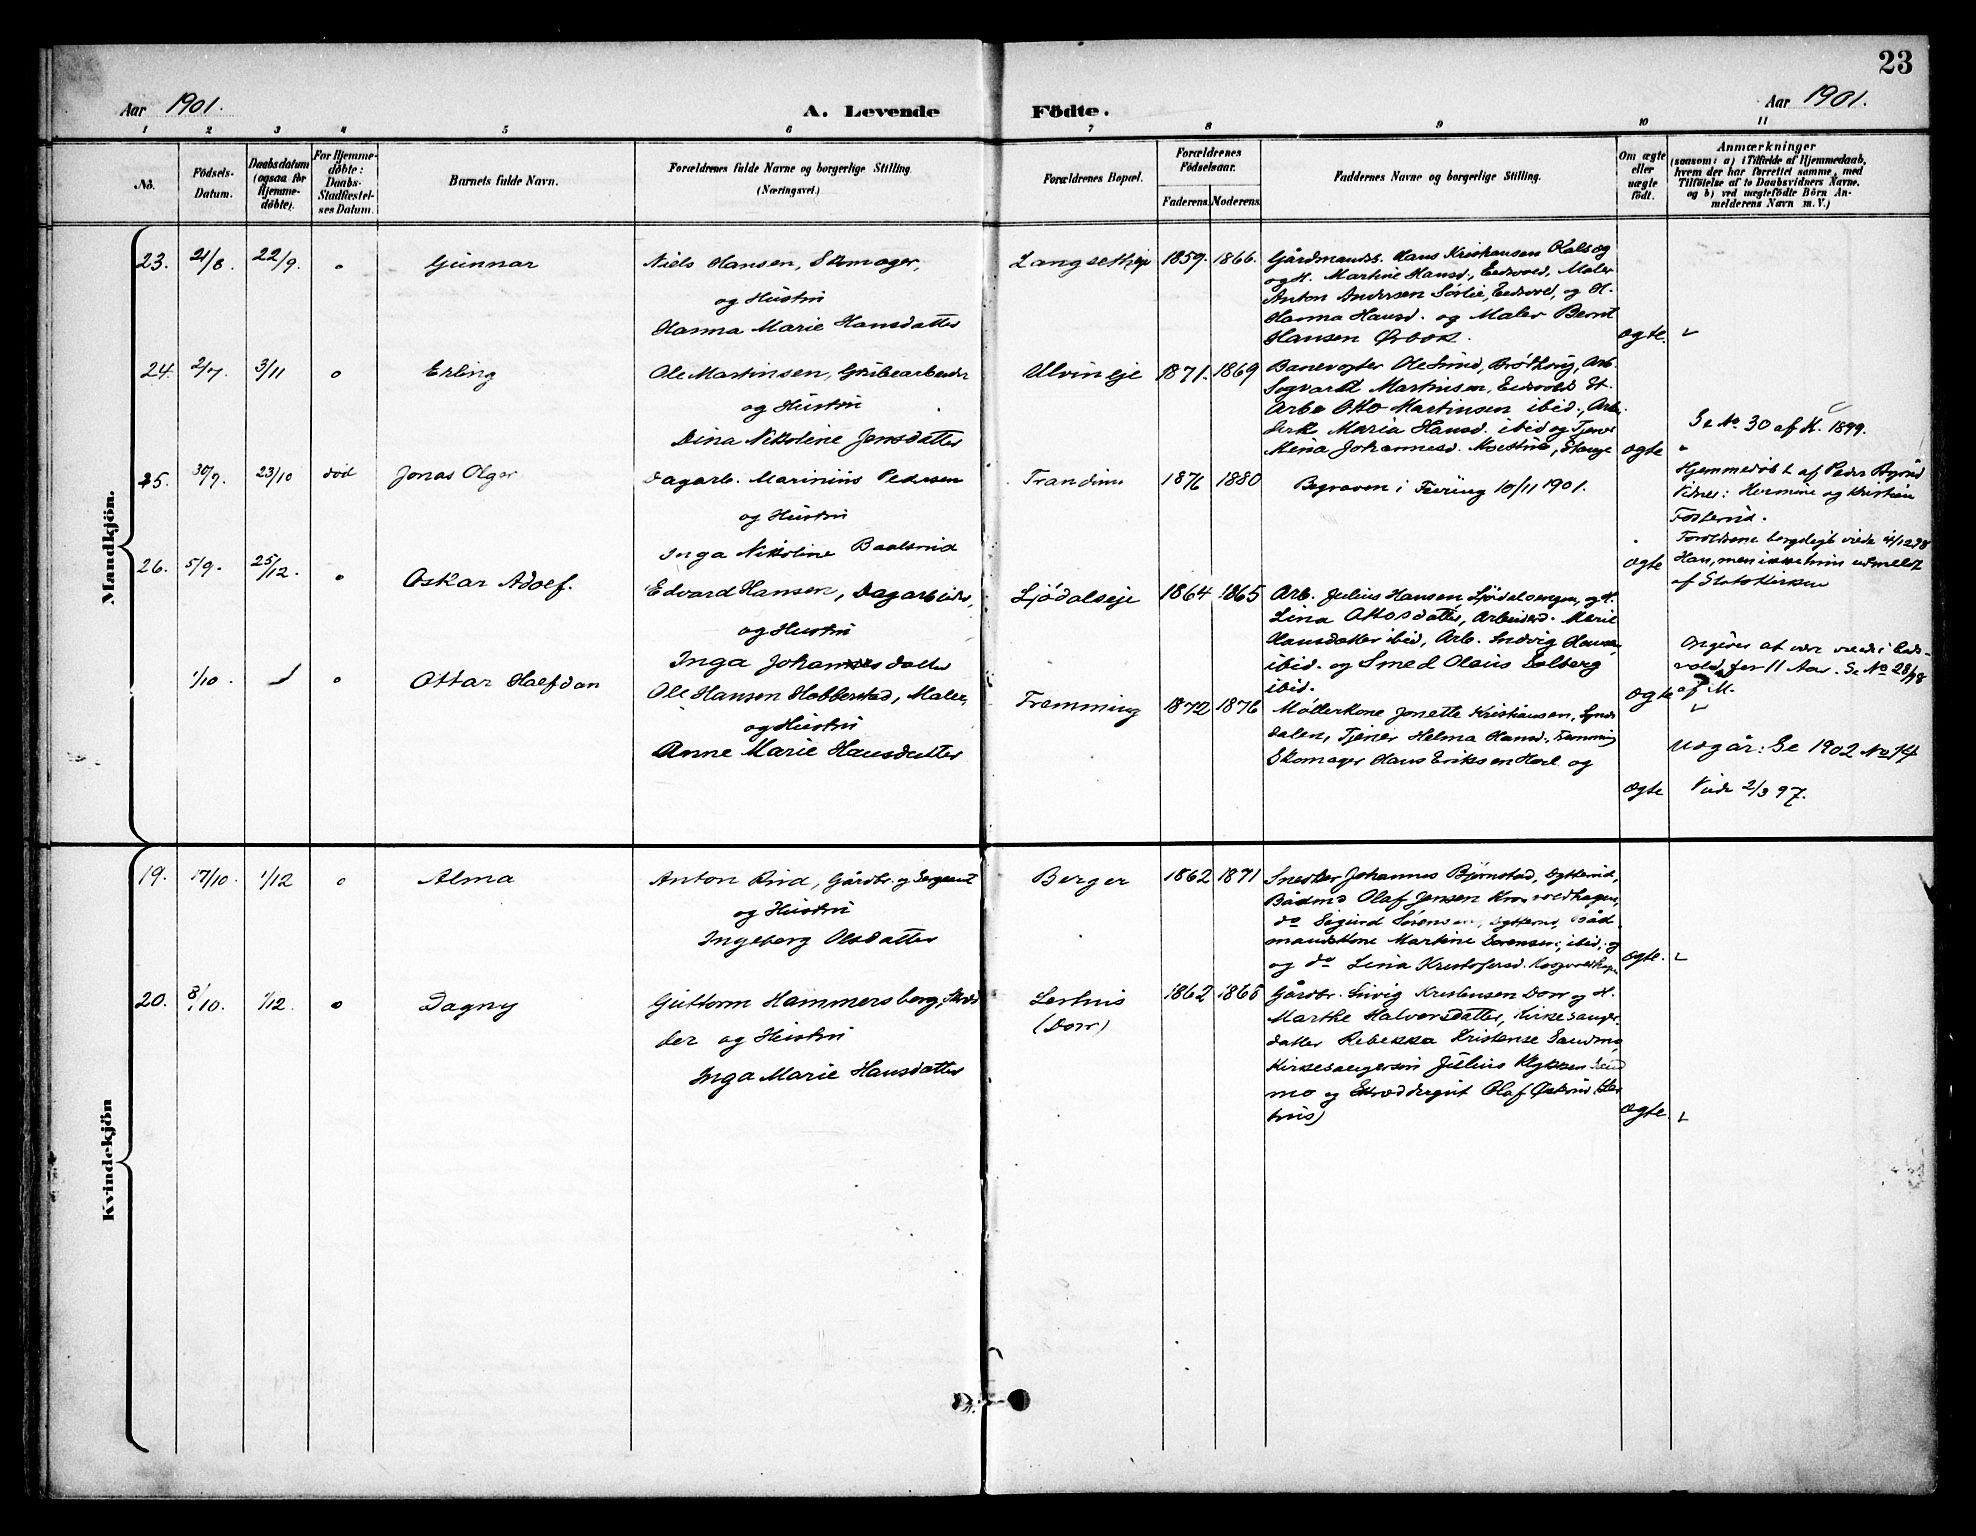 23
Aar 1901.
A. Levende Födte.
Aar 1901.
1 2 3 4 5 6 7 8 9 10 11
No.
Födsels-
Datum.
Daabsdatum
(ogsaa for
Hjemme-
döbte).
For Hjemme-
döbte:
Daabs-
Stadfæstel-
ses Datum.
Barnets fulde Navn.
Forældrenes fulde Navne og borgerlige Stilling.
(Næringsvei.)
Forældrenes Bopæl.
Forældrenes
Födselsaar.
Faderens. Moderens.
Faddernes Navne og borgerlige Stilling.
Om ægte
eller
uægte
födt.
Anmærkninger
(saasom: a) i Tilfælde af Hjemmedaab,
hvem der har forrettet samme, med
Tilföielse af to Daabsvidners Navne,
og b) ved uægtefödte Börn An-
melderens Navn m. V.)
Mandkjön.
23. 21/8. 22/9. o Gunnar
Niels Hansen, Skomager,
og Hustru
Hanna Marie Hansdatter
Langsetheje 1859. 1866.
Gårdmands. Hans Kristiansen
og H. Martine Hansd., Eidsvold, Maler
Anton Andersen Sørlie, Eidsvold, og H.
Hanna Hansd. og Maler Bernt
Hansen
ægte.
24. 2/7. 3/11 o Erling
Ole Martinsen, Grubearbeider
og Hustru
Dina Nikoline Jensdatter
Ulvin eje 1871. 1869
Banevogter
Martinsen, Eidsvold St.
Arb. Otto Martinsen ibid., Arb.
Maria Hansd. ibid og Tjener
Mina Johannesd.
ægte
Se No. 30 af K. 1899.
25. 30/9. 23/10 død Jonas Olger
Dagarb. Marinius Pedersen
og Hustru
Inga Nikoline
Trandum 1876 1880
Begraven i Feiring 10/11 1901.
ægte
Hjemmedøbt af Peder
Vidner: Hermine og Kristian
Forældrene borgerligt viede
Han, men ikke hun udmeldt
af Statskirken
26. 5/9. 25/12. o Oskar Adolf.
Edvard Hansen, Dagarbeider,
og Hustru
Inga Johannesdatter
Ljødalseje 1864 1865
Arb. Julius Hansen og H.
Lina Ottosdatter, Marie
Hansdatter ibid, Arb. Ludvig Hansen
ibid. og Smed Olaus Solberg
ibid.
ægte
Opgives at være viede i Eids-
vold for 11 Aar. Se No 28/98
af M.
1/10. o Ottar Halfdan
Ole Hansen Hobberstad, Maler,
og Hustru
Anne Marie Hansdatter
Fremming 1872 1876
Møllerkone Jonette Kristiansen,
dalen, Tjener Helma Hansd.,
Skomager Hans Eriksen og
ægte
Udgår: Se 1902 No 14
Viede 2/3 97.
Kvindekjön
19. 17/10. 1/12 o Alma
Anton Rud, Gårdbr. og Sergeant
og Hustru
Ingeborg Olsdatter
Berger 1862 1871
Snedker Johannes Bjørnstad,
Bådmd Olaf Jensen
do Sigurd Sørensen,
mandskone Martine Sørensen, ibid, og
og do Lina Kristofersd.
ægte.
20. 8/10. 1/12. o Dagny
Guttorm Hammersborg, Skræd
der og Hustru
Inga Marie Hansdatter
Lerhus
(Dorr)
1862 1865
Gårdbr. Kristensen Dorr og H.
Marthe Halvorsdatter, Kirkesanger-
datter Rebekka Kristense Sandmo,
Kirkesangersøn Julius
mo og Skræddergut Olaf (Ler
hus)
ægte.